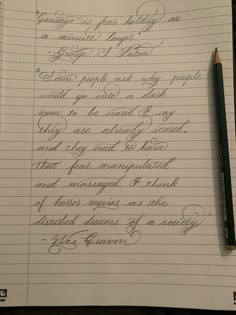 "Courage is fear holding on
a minute longer."
- George S. Patton
"Some people ask why people
would go into a dark
room to be scared. I say
they are already scared,
and they need to have
that fear manipulated
and massaged. I think
of horror movies as the
disturbed dreams of a society."
- Wes Craven